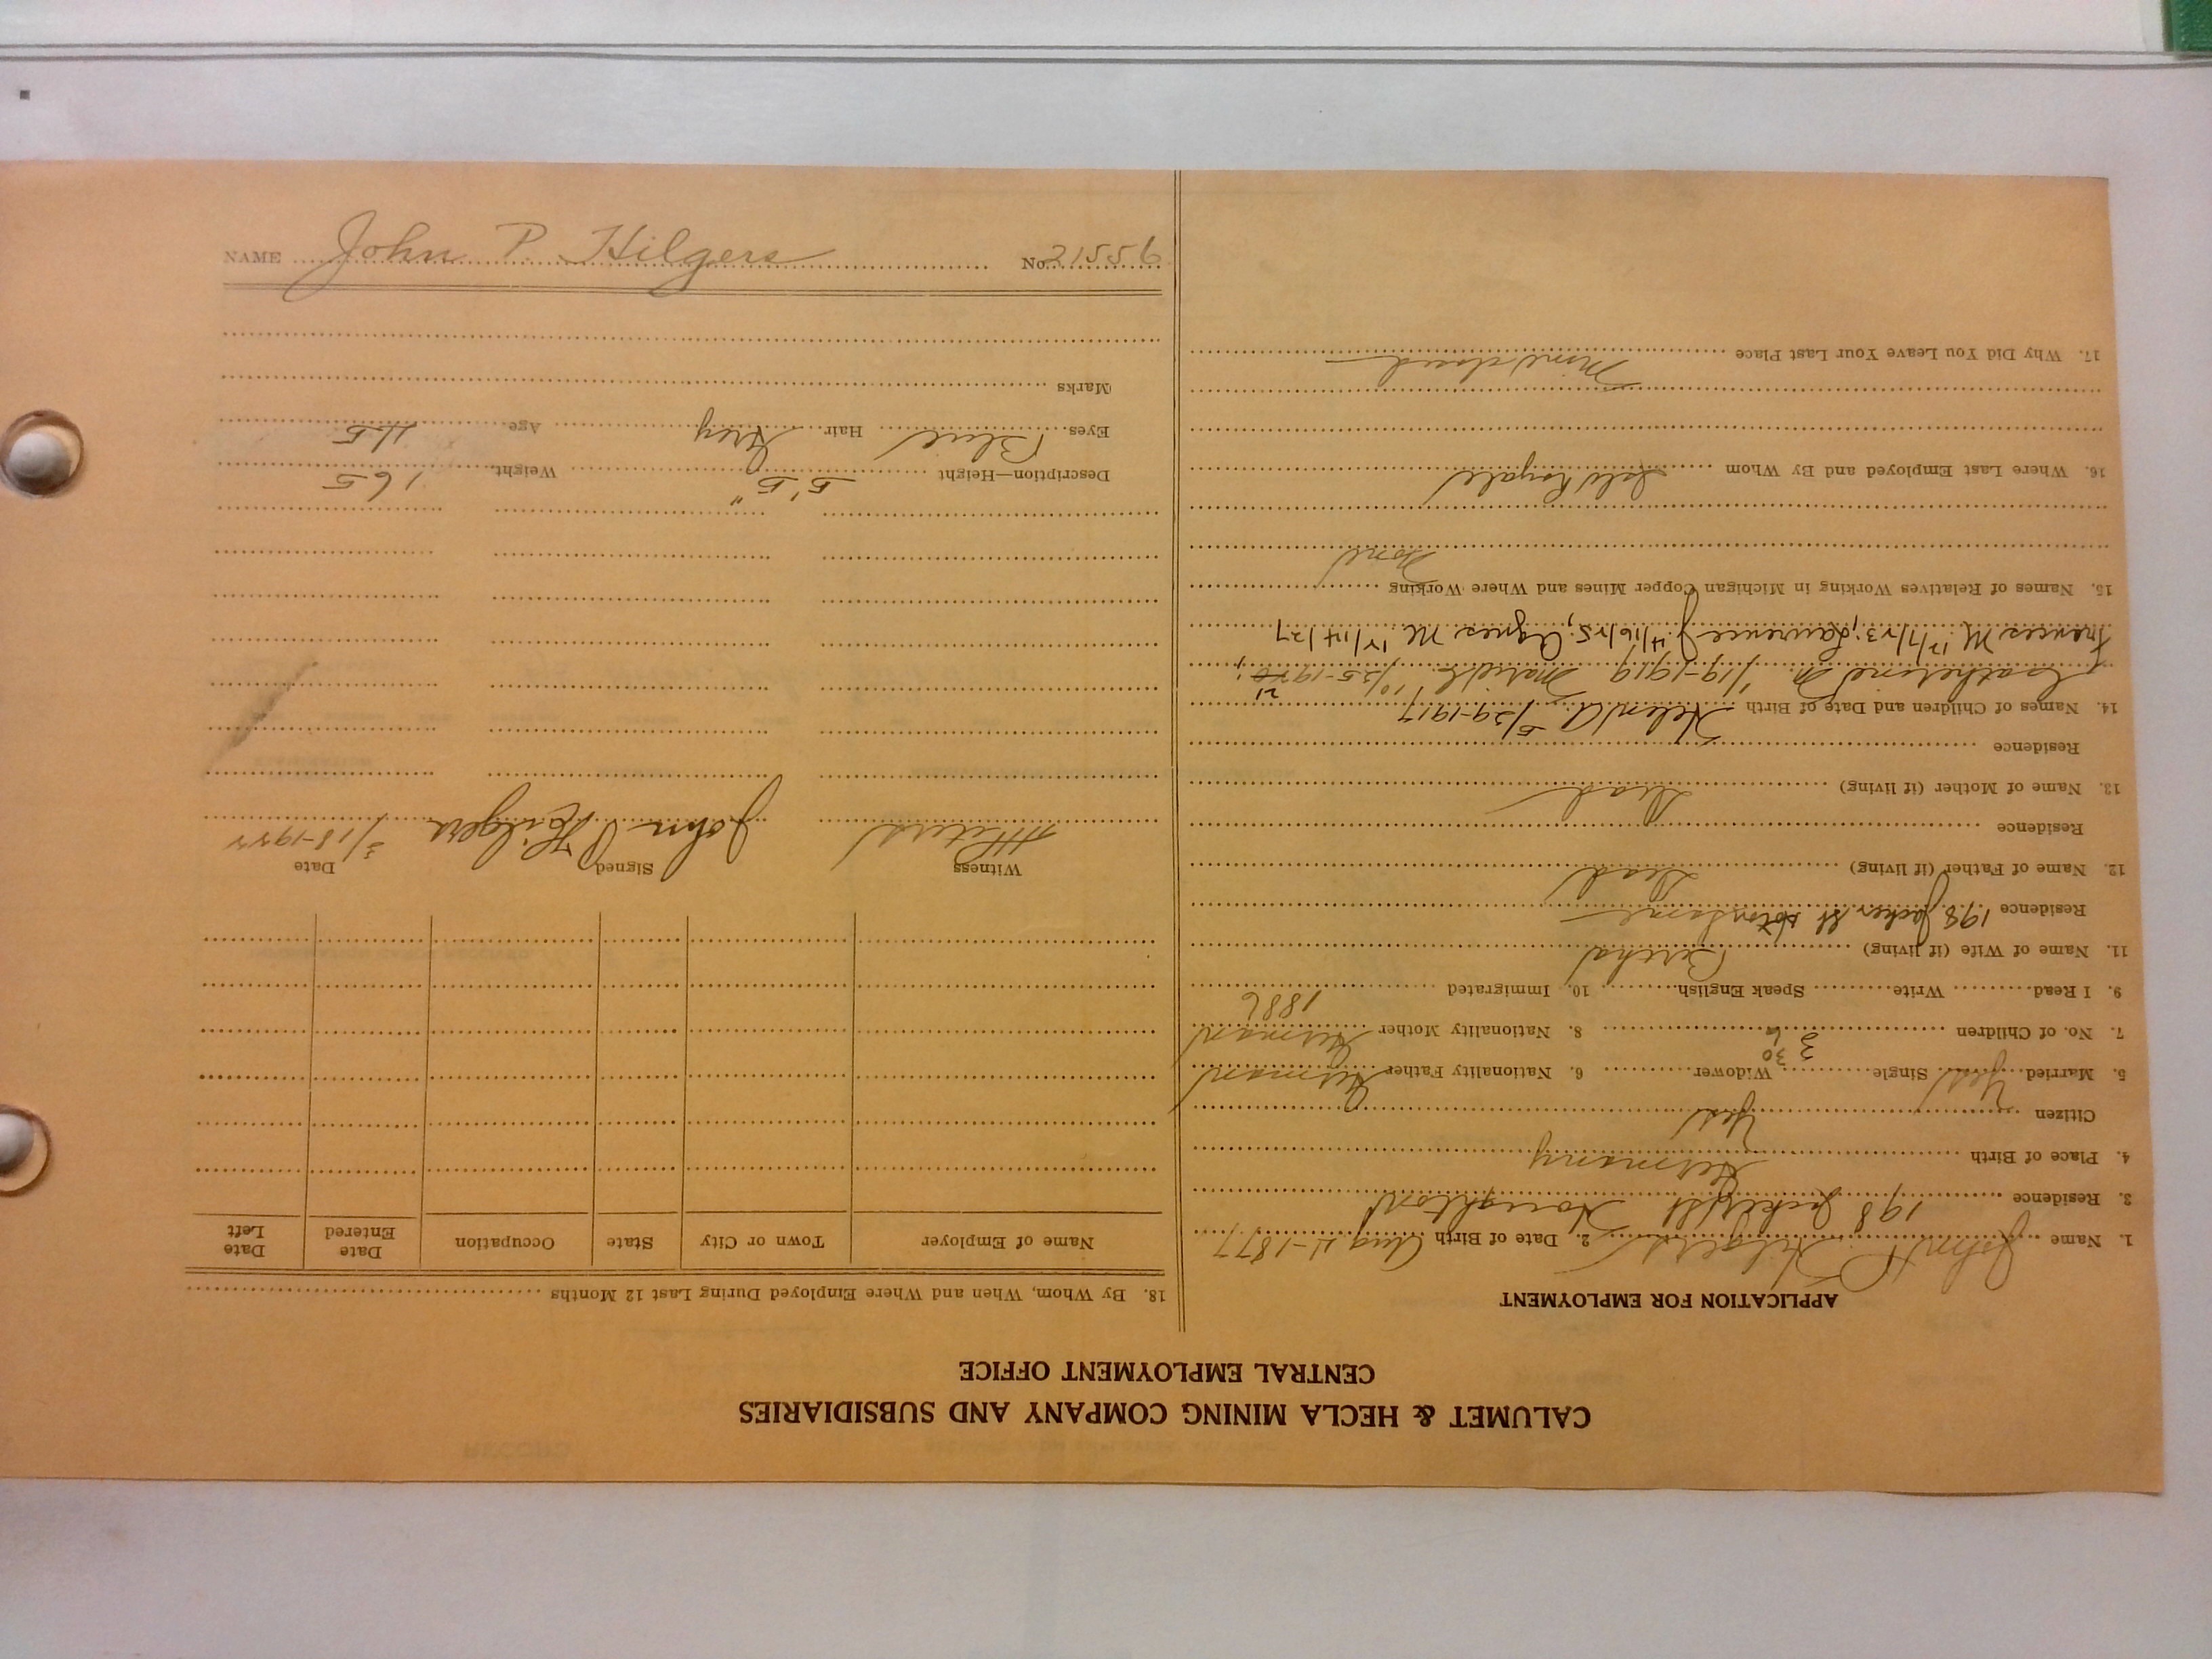 CALUMET & HECLA MINING COMPANY AND SUBSIDIARIES
CENTRAL EMPLOYMENT OFFICE
APPLICATION FOR EMPLOYMENT
1. Name John P Hilgers 2. Date of Birth Aug 11-1877
3. Residence 198 Houghton
4. Place of Birth Germany
Citizen Yes
5. Married Yes Single Widower 6. Nationality Father German
7. No. of Children 3 6 8. Nationality Mother German
9. I Read Write Speak English 10. Immigrated 1886
11. Name of Wife (if living) Bertha
Residence 198 St
12. Name of Father (if living) Dead
Residence
13. Name of Mother (if living) Dead
Residence
14. Names of Children and Date of Birth Helen A. 5/29-1917
Catherine M. 1/19-1919 10/25-19 21;
Frances M 12/7/23; Lawrence J 4/16/25; Agnes M. 12/14/27
15. Names of Relatives Working in Michigan Copper Mines and Where Working None
16. Where Last Employed and By Whom Isle Royale
17. Why Did You Leave Your Last Place Mine closed
18. By Whom, When and Where Employed During Last 12 Months
Name of Employer Town or City State Occupation Date Entered Date Left
Witness Signed Date
John P Hilgers 3/18-1922
Description—Height 5' 5" Weight 165
Eyes Blue Hair Grey Age
Marks
NAME John P. Hilgers No. 21556